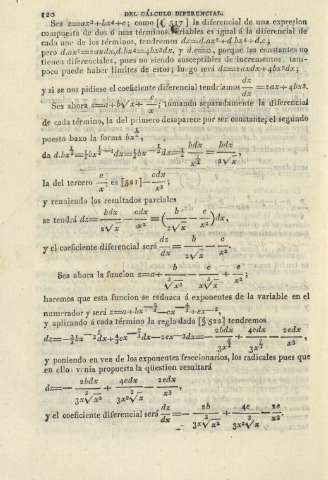 120 DEL CÁLCULO DIFERENCIAL.
Sea z=ax²+bx⁴+c; como [§ 517] la diferencial de una expresion
compuesta de dos ó mas términos variables es igual á la diferencial de
cada uno de los términos, tendremos dz=d.ax²+d.bx⁴+d.c;
pero d.ax²=2axdx, d.bx⁴=4bx³dx, y d.c=0, porque las constantes no
tienen diferenciales, pues no siendo susceptibles de incrementos, tam-
poco puede haber límites de estos; luego será dz=2axdx+4bx³dx;
y si se nos pidiese el coeficiente diferencial tendríamos dz/dx=2ax+4bx³.
Sea ahora z=a+b√x+c/x; tomando separadamente la diferencial
de cada término, la del primero desaparece por ser constante; el segundo
puesto bajo la forma bx^½,
da d.bx^½=½bx^(½-1)dx=½bx^(-½)dx=½ bdx/x^½=bdx/2√x,
la del tercero c/x es [§21]-cdx/x²;
y reuniendo los resultados parciales
se tendrá dz=bdx/2√x-cdx/x²=(b/2√x-c/x²)dx,
y el coeficiente diferencial será dz/dx=b/2√x-c/x².
Sea ahora la funcion z=a+b/∛x²-c/x∛x+e/x²;
haremos que esta funcion se reduzca á exponentes de la variable en el
numerador y será z=a+bx^(-2/3)-cx^(-4/3)+ex^(-2),
y aplicando á cada término la regla dada [§ 520] tendremos
dz=-⅔bx^(-2/3-1)dx+4/3cx^(-4/3-1)dx-2ex^(-3)dx=-2bdx/3x^(5/3)+4cdx/3x^(7/3)-2edx/x³,
y poniendo en vez de los exponentes fraccionarios, los radicales pues que
en ello venía propuesta la qüestion resultará
dz=-2bdx/3x∛x²+4cdx/3x²∛x-2edx/x³,
y el coeficiente diferencial será dz/dx=-2b/3x∛x²+4c/3x²∛x-2e/x³.